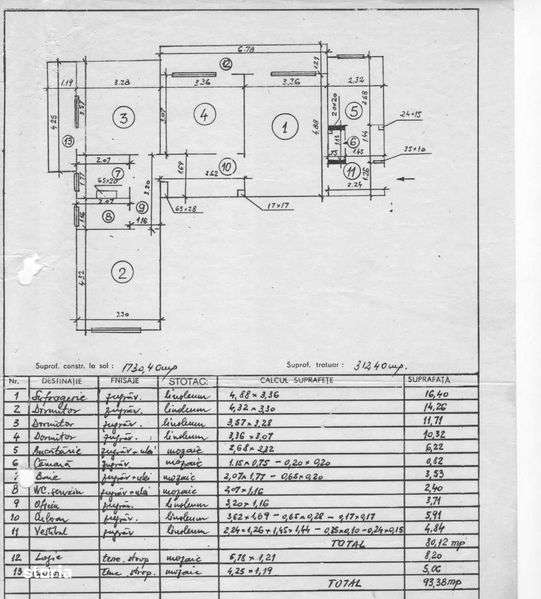 6.78
12
1.21
1.19
3.28
3.36
3.36
2.32
4.25
3.57
3
3.07
4
1
4.88
2.68
20×20
5
24×15
1.44
13
7
2.07
1.77
65×20
10
1.69
3.62
1.15
6
1.45
35×10
11
1.26
2.24
2.07
3.20
9
8
1.16
1.16
65×28
17×17
4.32
2
3.30
Supraf. constr. la sol : 1730,40 mp
Supraf. trotuar : 312,40 mp.
Nr. DESTINAȚIE FINISAJE STOTAC. CALCUL SUPRAFEȚE SUPRAFAȚĂ
1 Sufragerie zugrăv. linoleum 4,88 × 3,36 16,40
2 Dormitor zugrăv. linoleum 4,32 × 3,30 14,26
3 Dormitor zugrăv. linoleum 3,57 × 3,28 11,71
4 Dormitor zugrăv. linoleum 3,36 × 3,07 10,32
5 Bucătărie zugrăv + ulei mozaic 2,68 × 2,32 6,22
6 Cămară zugrăv mozaic 1.15 × 0,75 – 0,20 × 0,20 0,82
7 Baie zugrăv + ulei mozaic 2,07 × 1,77 – 0,65 × 0,20 3,53
8 WC. serviciu zugrăv + ulei mozaic 2,07 × 1,16 2,40
9 Oficiu zugrăv. linoleum 3,20 × 1,16 3,71
10 zugrăv. linoleum 3,62 × 1,69 – 0,65 × 0,28 – 0,17 × 0,17 5,91
11 Vestibul zugrăv. linoleum 2,24 × 1,26 + 1,45 × 1,44 – 0,35 × 0,10 – 0,24 × 0,15 4,84
TOTAL 80,12 mp
12 Logie tenc. strop mozaic 6,78 × 1,21 8,20
13 tenc. strop. mozaic 4,25 × 1,19 5,06
TOTAL 93,38 mp
storia